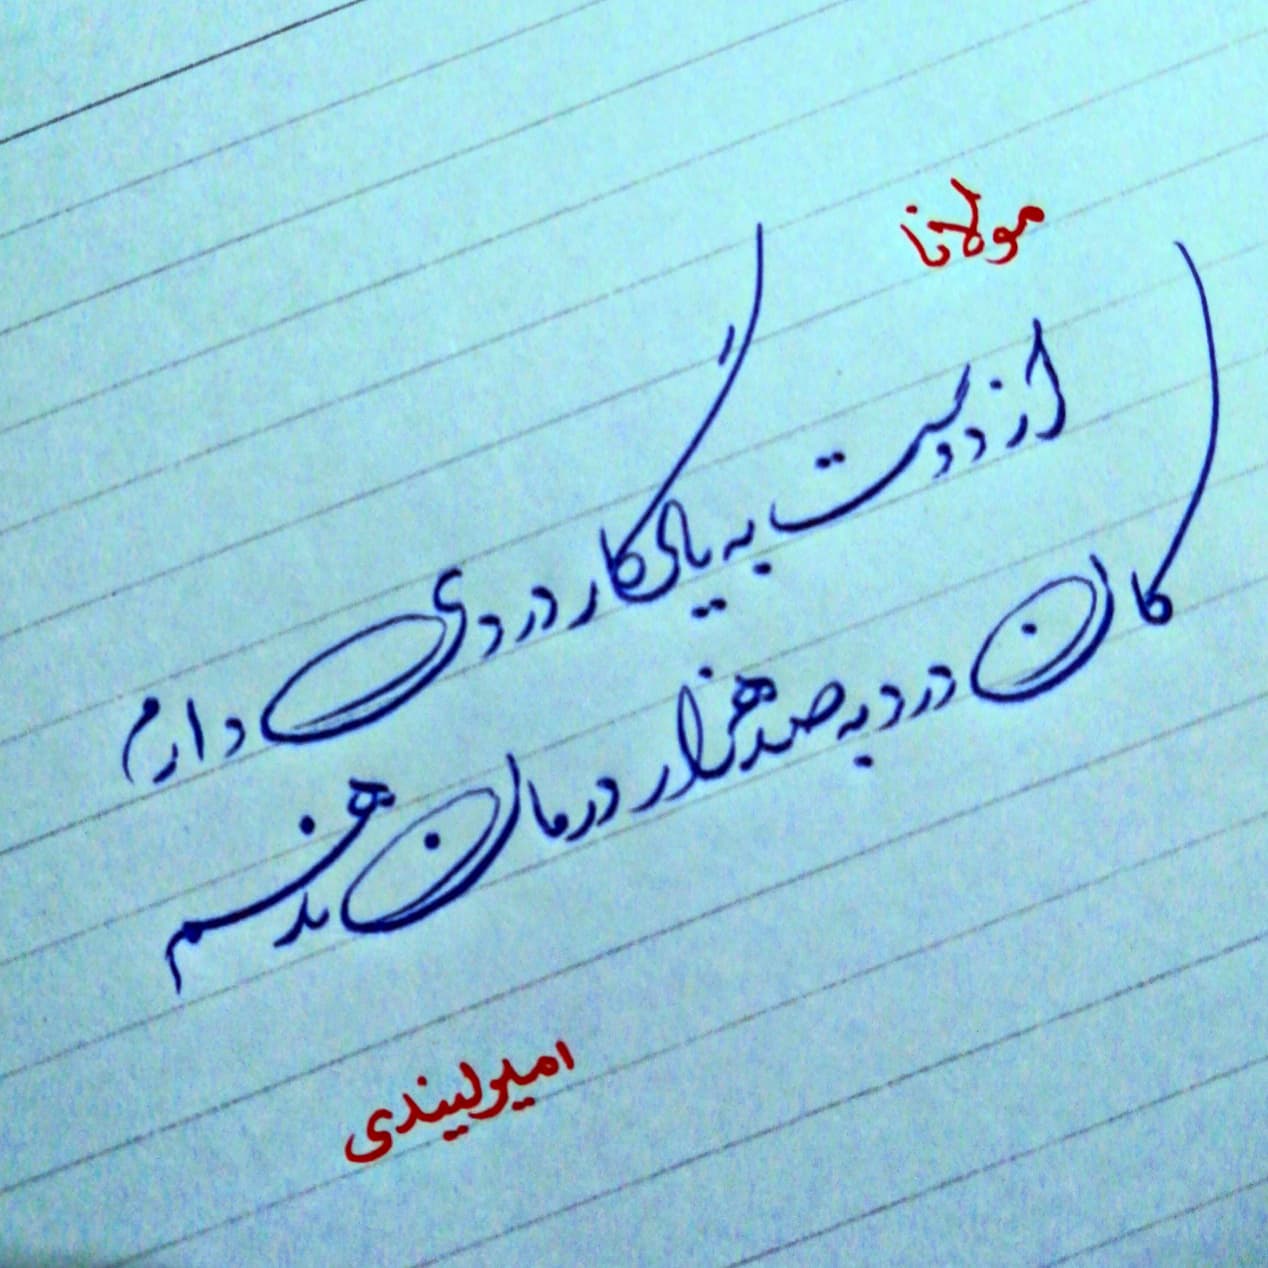 مولانا
از دوست به یادگار دردی دارم
کان درد به صد هزار درمان ندهم
امیر